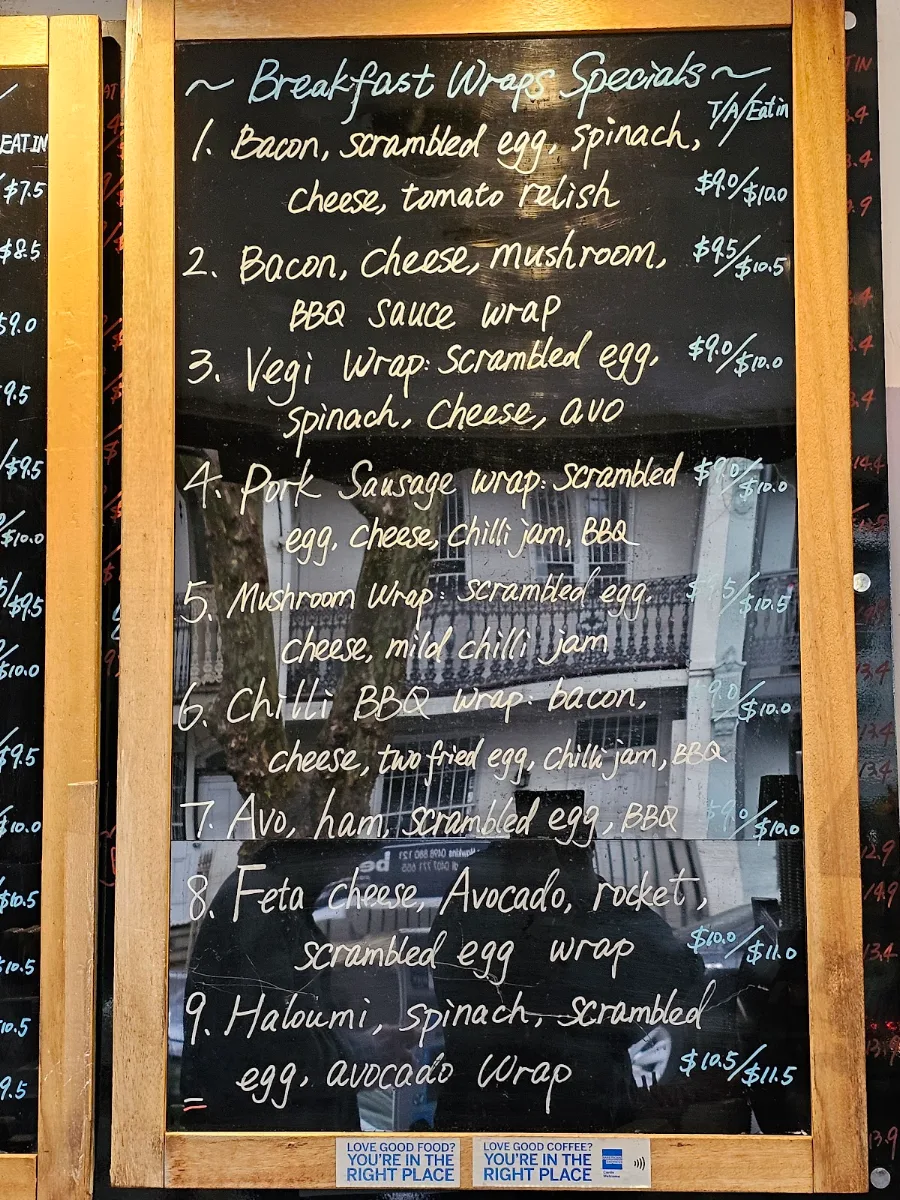 ~ Breakfast Wraps Specials ~
T/A/Eat in
1. Bacon, scrambled egg, spinach,
cheese, tomato relish $9.0/$10.0
2. Bacon, Cheese, mushroom, $9.5/$10.5
BBQ sauce wrap
3. Vegi Wrap: Scrambled egg, $9.0/$10.0
spinach, Cheese, avo
4. Pork Sausage wrap: scrambled $9.0/$10.0
egg, cheese, chilli jam, BBQ
5. Mushroom Wrap: scrambled egg, $9.5/$10.5
cheese, mild chilli jam
6. Chilli BBQ wrap: bacon, 9.0/$10.0
cheese, two fried egg, chilli jam, BBQ
7. Avo, ham, scrambled egg, BBQ $9.0/$10.0
8. Feta cheese, Avocado, rocket,
scrambled egg wrap $10.0/$11.0
9. Haloumi, spinach, scrambled
egg, avocado Wrap $10.5/$11.5
EAT IN
/$7.5
$8.5
$9.0
9.5
/$9.5
$10.0
/$9.5
$10.0
$9.5
$10.0
$10.5
$10.5
10.5
9.5
LOVE GOOD FOOD?
YOU'RE IN THE
RIGHT PLACE
LOVE GOOD COFFEE?
YOU'RE IN THE
RIGHT PLACE